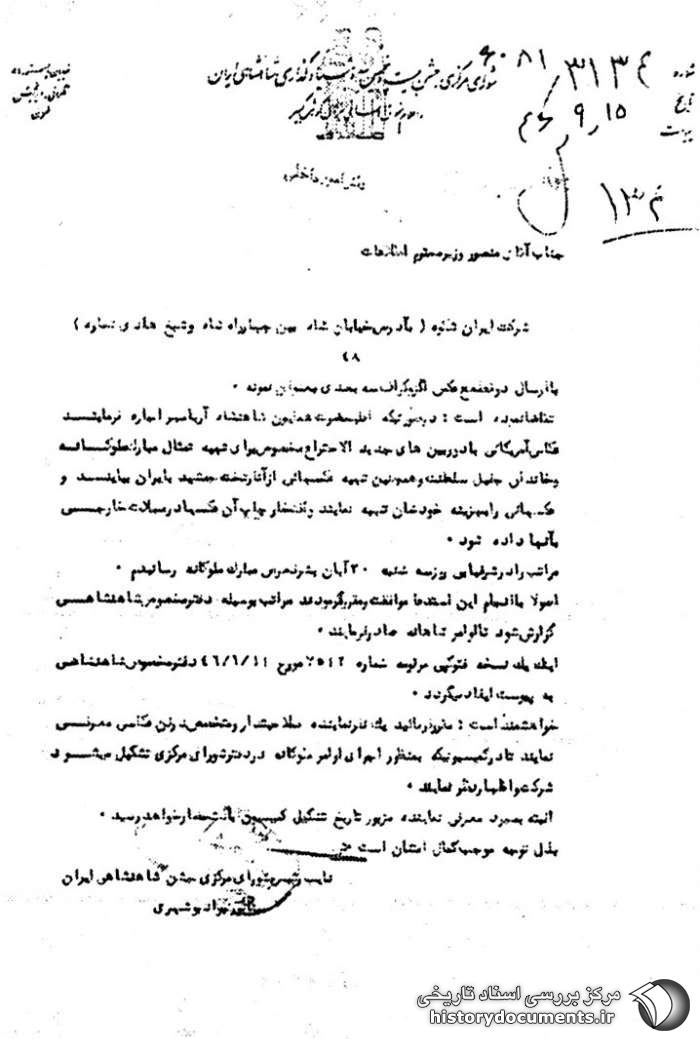 شورای مرکزی جشن بنیادگذاری شاهنشاهی ایران
شماره ۳۱۳۴
تاریخ ۱۵ر۹ر
پیوست
جناب آقای منصور وزیر محترم اطلاعات
شرکت ایران ( بآدرس خیابان شاه بین چهارراه شاه و شیخ هادی شماره )
۴۸
با ارسال دو قطعه عکس اگزوگراف سه بعدی بعنوان نمونه ۰
تقاضا نموده است : در صورتیکه اعلیحضرت همایون شاهنشاه آریامهر اجازه فرمایند
عکاس آمریکائی با دوربین های جدید الاختراع مخصوص برای تهیه تمثال مبارک ملوکانه
و خاندان جلیل سلطنت و همچنین تهیه عکسهائی از آثار تخت جمشید بایران بیایند و
عکسهائی را بهزینه خودشان تهیه نمایند و افتخار چاپ آن عکسها در مجلات خارجی
بآنها داده شود ۰
مراتب را در شرفیابی روز سه شنبه ۳۰ آبان بشرفعرض مبارک ملوکانه رسانیدم ۰
اصولا با انجام این استدعا موافقت و مقرر فرمودند مراتب بوسیله دفتر مخصوص شاهنشاهی
گزارش شود تا اوامر شاهانه صادر فرمایند ۰
اینک یک نسخه فتوکپی مرقومه شماره مورخ دفتر مخصوص شاهنشاهی
به پیوست ایفاد میگردد ۰
خواهشمند است : مقرر فرمائید یک نفر نماینده صلاحیتدار و متخصص در فن عکاسی معرفی
نمایند تا در کمیسیونیکه بمنظور اجرای اوامر ملوکانه در دفتر شورای مرکزی تشکیل میشود
شرکت و اظهار نظر نمایند ۰
البته بمجرد معرفی نماینده مزبور تاریخ تشکیل کمیسیون باستحضار خواهد رسید ۰
بذل توجه موجب کمال امتنان است
نایب رئیس شورای مرکزی جشن شاهنشاهی ایران
جواد بوشهری
مرکز بررسی اسناد تاریخی
historydocuments.ir